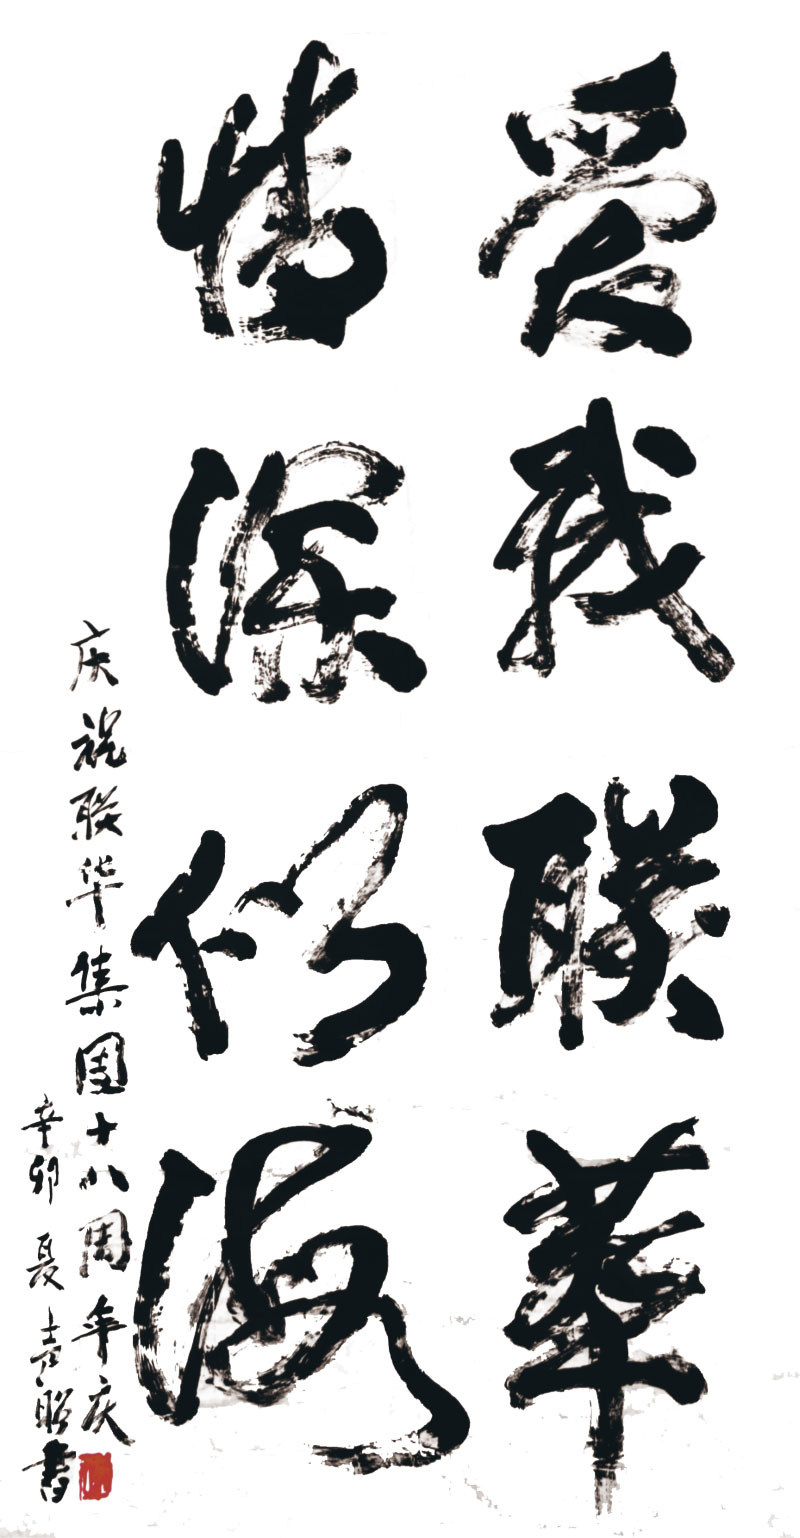 爱我联華
情深似海
庆祝联华集團十八周年庆
辛卯夏嘉書